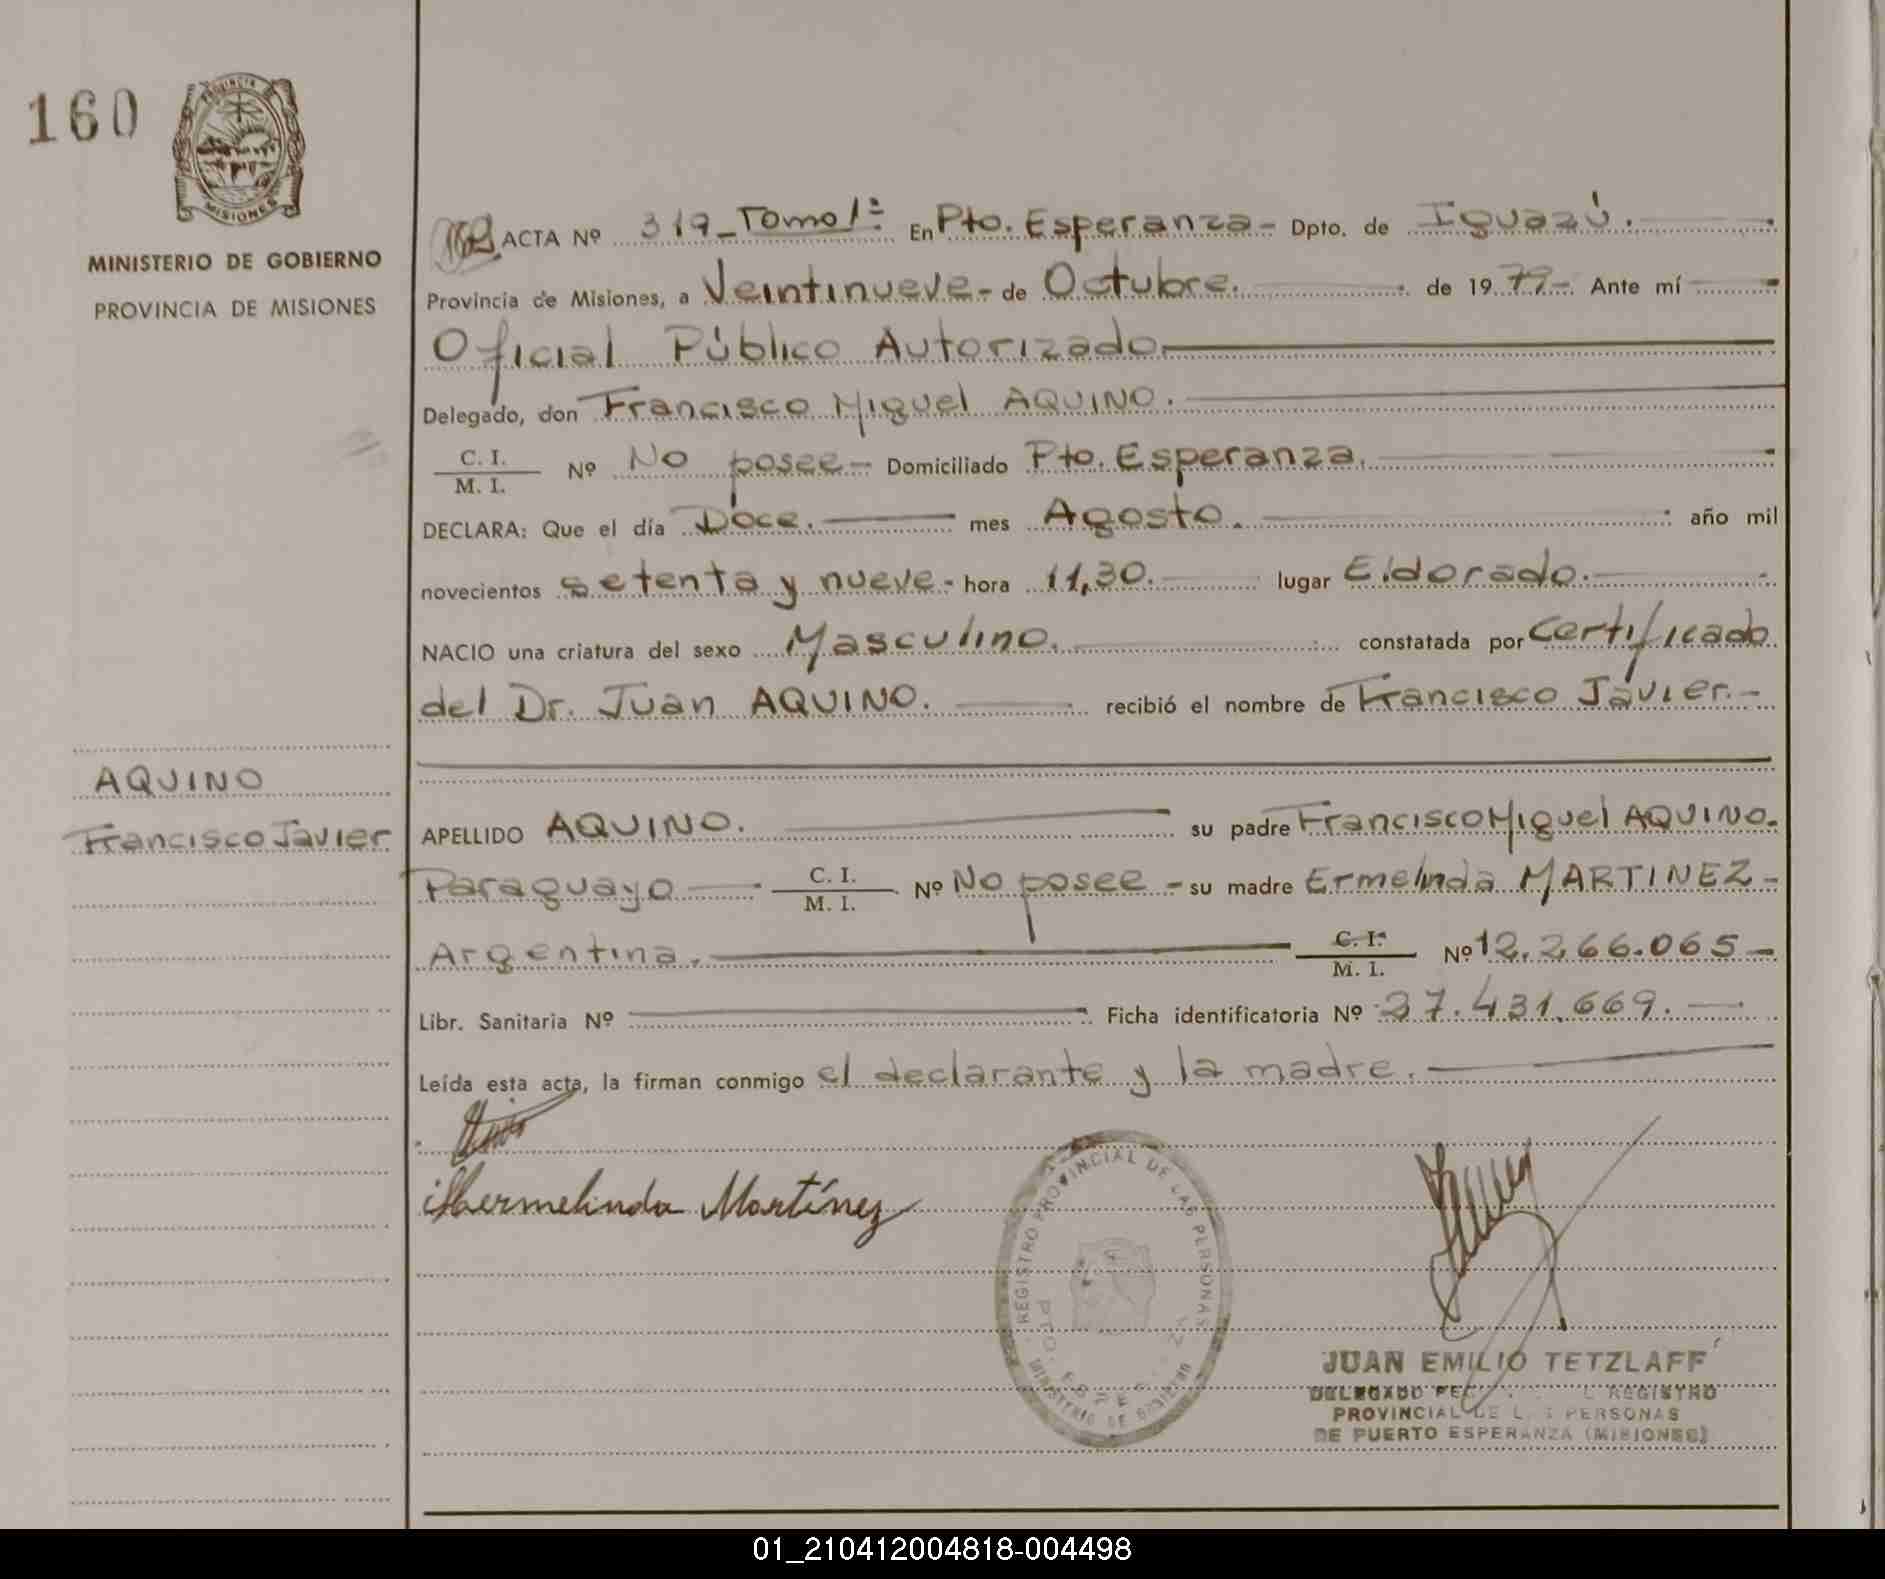 160
PROVINCIA DE
MISIONES
MINISTERIO DE GOBIERNO
PROVINCIA DE MISIONES
ACTA Nº 319_Tomo 1º En Pto. Esperanza- Dpto. de Iguazú.
Provincia de Misiones, a Veintinueve- de Octubre. de 1979- Ante mí
Oficial Público Autorizado.
Delegado, don Francisco Miguel AQUINO.
C. I.
M. I. Nº No posee- Domiciliado Pto. Esperanza.
DECLARA: Que el día Doce. mes Agosto. año mil
novecientos setenta y nueve- hora 11,30. lugar Eldorado.
NACIO una criatura del sexo Masculino. constatada por Certificado
del Dr. Juan AQUINO. recibió el nombre de Francisco Javier.-
AQUINO
Francisco Javier
APELLIDO AQUINO. su padre Francisco Miguel AQUINO.
Paraguayo C. I.
M. I. Nº No posee - su madre Ermelinda MARTINEZ-
Argentina. C. I.
M. I. Nº 12.266.065-
Libr. Sanitaria Nº Ficha identificatoria Nº 27.431.669.
Leída esta acta, la firman conmigo el declarante y la madre.
Hermelinda Martínez
REGISTRO PROVINCIAL DE LAS PERSONAS
MINISTERIO DE GOBIERNO
JUAN EMILIO TETZLAFF
DELEGADO REGISTRO
PROVINCIAL DE PERSONAS
DE PUERTO ESPERANZA (MISIONES)
01_210412004818-004498